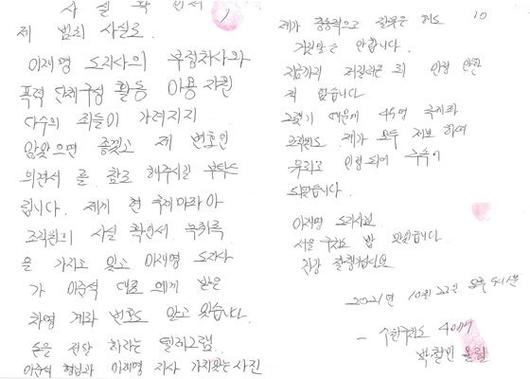 사실확인서
1
제 범죄 사실로
이재명 도지사의 부정처사와
폭력 단체구성 활동 이용 자원
다수의 죄들이 가려지지
않았으면 좋겠고 제 변호인
의견서 를 참고 해주시길 부탁드
립니다. 제게 현 국제마피아
조직원의 사실 확인서 녹취록
을 가지고 있고 이재명 도지사
가 이준석 대표 에게 받은
차명 계좌 번호도 알고 있습니다.
돈을 전달 하라는 텔레그램
이준석 형님과 이재명 지사 가치있는 사진
10
제가 충동적으로 잘못은 해도
거짓말은 안합니다.
지금까지 저질러온 죄 인정 안한
적 없습니다
그렇기 때문에 45명 국제파
조직원도 제가 모두 제보 하여
유죄로 인정되어 구속이
되었습니다.
이재명 도지사님
서울 구치소 밥 맛있습니다
건강 잘챙기십시요
2021년 10월 20일
- 수원구치소 4017
박철민 올림